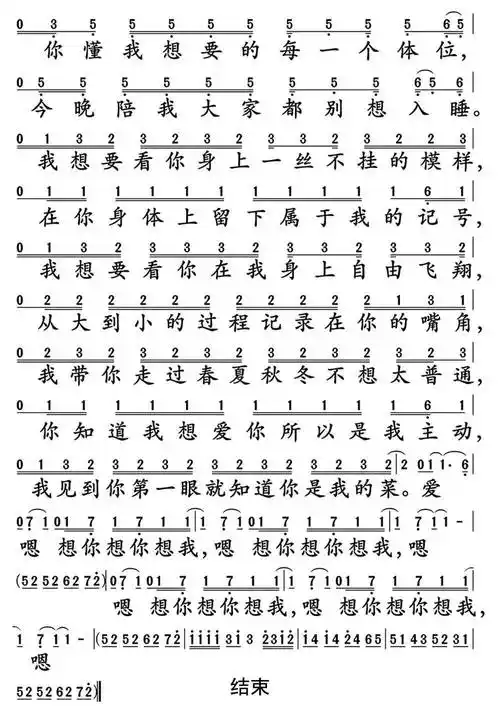 0 3 5 5 5 5 5 5 5 5 (6 5)
你懂我想要的每一个体位，
0 5 5 5 5 5 5 5 5 5 6 5 6
今晚陪我大家都别想入睡。
0 1 3 2 3 2 3 2 3 3 2 3 2 3
我想要看你身上一丝不挂的模样，
0 1 1 1 1 1 1 1 1 1 1 1 6 1
在你身体上留下属于我的记号，
0 1 3 2 3 2 3 2 3 2 3 2 3 2
我想要看你在我身上自由飞翔，
0 2 2 2 2 2 2 2 2 2 2 2 1 3 1
从大到小的过程记录在你的嘴角，
0 1 3 2 3 2 3 2 3 2 3 2 3 2
我带你走过春夏秋冬不想太普通，
0 1 1 1 1 1 1 1 1 1 1 1 6 1
你知道我想爱你所以是我主动，
0 1 3 2 3 2 3 2 3 2 3 2 3 2 2 01 1· 6
我见到你第一眼就知道你是我的菜。爱
0 7 1 01 1 7 1 7 1 1 0 7 1 01 1 7 1 7 1 1 1 7 1 1 -
嗯 想你想你想我，嗯 想你想你想我，嗯
(52 52 62 72) 0 7 1 01 1 7 1 7 1 1 0 7 1 01 1 7 1 7 1 1
嗯 想你想你想我，嗯 想你想你想我，
1 7 1 1 - (52 52 62 72 1111 313 2312 1414 2465 5145 5231
嗯
52 52 62 72) 结束